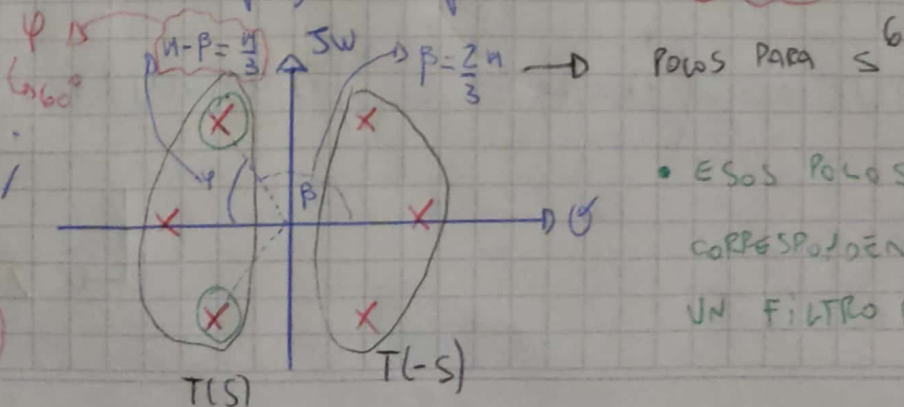 φ
π-β = π/3
jω
β = 2/3 π
POLOS PARA S⁶
60°
φ
β
σ
• ESOS POLOS
CORRESPONDEN
UN FILTRO
T(S)
T(-S)